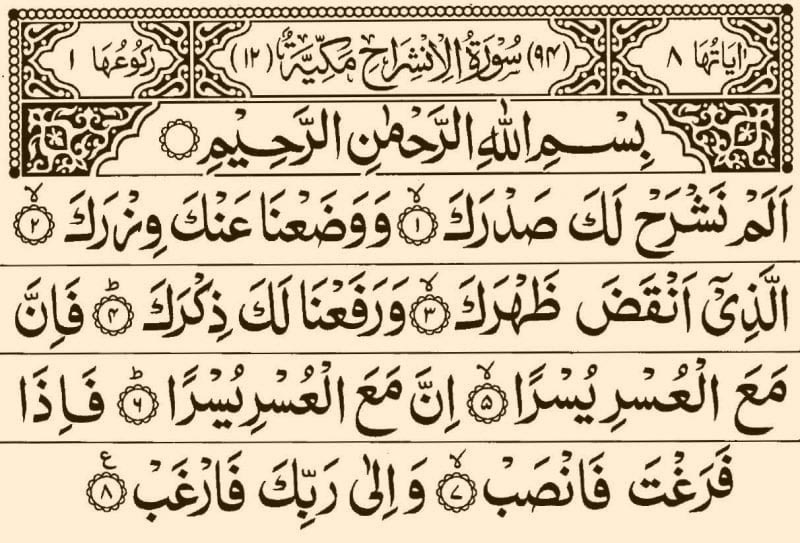 اٰيَاتُهَا ٨ (٩٤) سُوْرَةُ الْاِنْشِرَاحِ مَكِّيَّةٌ (١٢) رُكُوْعُهَا ١
بِسْمِ اللّٰهِ الرَّحْمٰنِ الرَّحِيْمِ ۝
اَلَمْ نَشْرَحْ لَكَ صَدْرَكَ ۙ﴿١﴾ وَوَضَعْنَا عَنْكَ وِزْرَكَ ۙ﴿٢﴾
الَّذِيْٓ اَنْقَضَ ظَهْرَكَ ۙ﴿٣﴾ وَرَفَعْنَا لَكَ ذِكْرَكَ ؕ﴿۴﴾ فَاِنَّ
مَعَ الْعُسْرِ يُسْرًا ۙ﴿۵﴾ اِنَّ مَعَ الْعُسْرِ يُسْرًا ؕ﴿۶﴾ فَاِذَا
فَرَغْتَ فَانْصَبْ ۙ﴿٧﴾ وَاِلٰى رَبِّكَ فَارْغَبْ ﴿٨﴾ ع